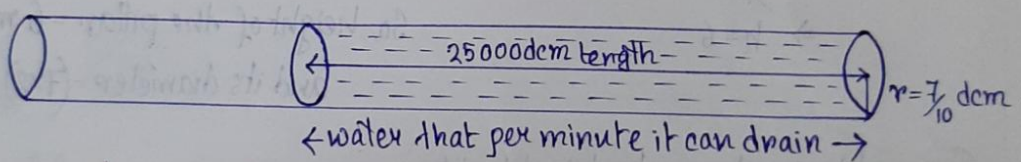 25000dcm length
r=7/10 dcm
←water that per minute it can drain→